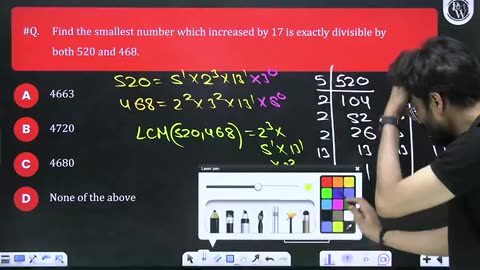 #Q. Find the smallest number which increased by 17 is exactly divisible by
both 520 and 468.
A 4663
B 4720
C 4680
D None of the above
520 = 5¹ × 2³ × 13¹ × 3⁰
468 = 2² × 3² × 13¹ × 5⁰
LCM(520,468) = 2³ ×
5¹ × 13¹
5 520
2 104
2 52
2 26
13 13
Laser pen